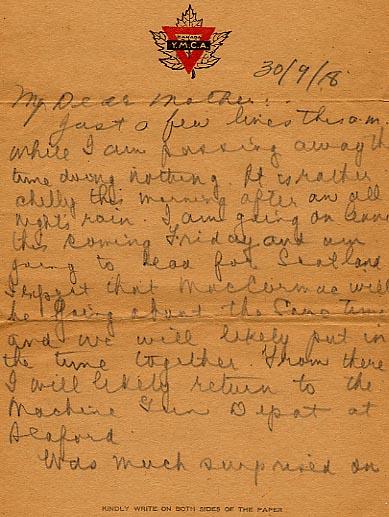 CANADA
Y.M.C.A.
30/9/18.
My Dear Mother:
Just a few lines this a.m.
while I am passing away the
time doing nothing. It is rather
chilly this morning after an all
night's rain. I am going on
this coming Friday and am
going to head for Scotland
I expect that MacCormac will
be going about the same time
and we will likely put in
the time together. From there
I will likely return to the
Machine Gun Depot at
Seaford.
Was much surprised on
KINDLY WRITE ON BOTH SIDES OF THE PAPER